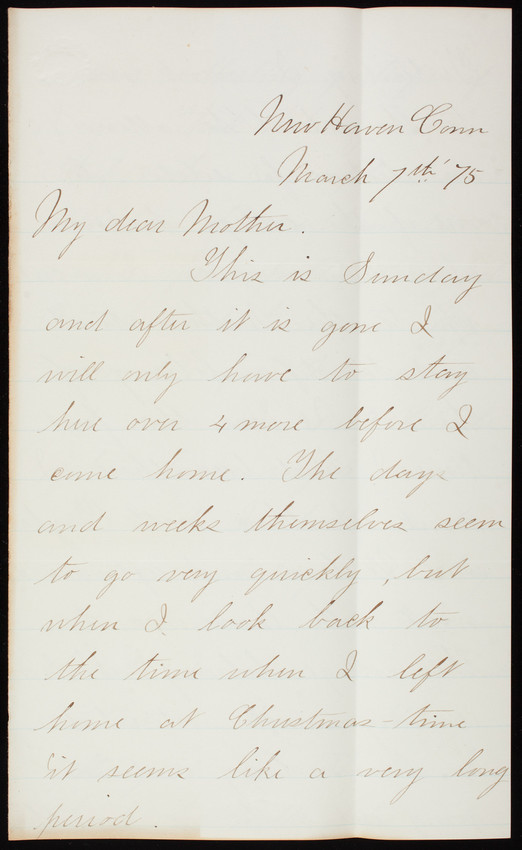 New Haven Conn
March 7th '75
My dear Mother.
This is Sunday
and after it is gone I
will only have to stay
here over 4 more before I
come home. The days
and weeks themselves seem
to go very quickly, but
when I look back to
the time when I left
home at Christmas-time
it seems like a very long
period.